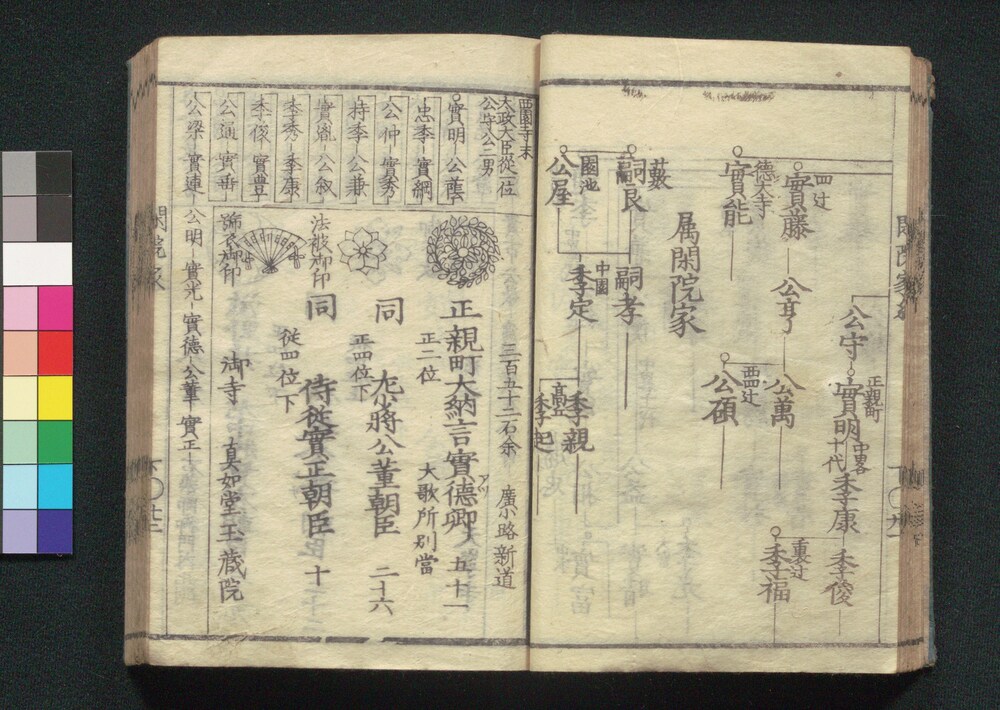 閑院家
公守
正親町
實明
中畧
十代
季康
季俊
四辻
實藤
公亨
公萬
西四辻
公碩
裏辻
季福
德大寺
實能
属閑院家
藪
嗣良
嗣孝
中園
季定
季親
高丘
季起
園池
公屋
西園寺末
太政大臣從一位
公守公二男
實明
公蔭
忠季
實綱
公仲
實秀
持季
公兼
實胤
公叙
季秀
季康
季俊
實豊
公通
實連
公明
實光
實德
公董
實正
三百五十二石余
廣小路新道
正親町大納言實德卿
アツ
五十一
正二位
大歌所別當
同
左少將公董朝臣
二十六
正四位下
同
侍從實正朝臣
十
從四位下
法被御印
御寺
真如堂玉蔵院
閑院家